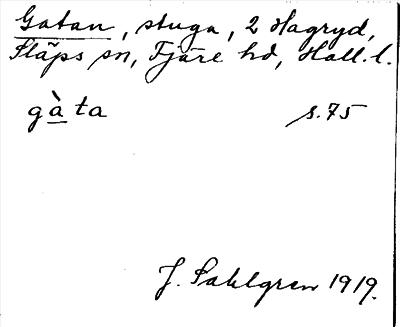 Gatan, stuga, 2 Hagryd,
Släps sn, Fjäre hd, Hall. l.
gàta s. 75
J. Sahlgren 1919.